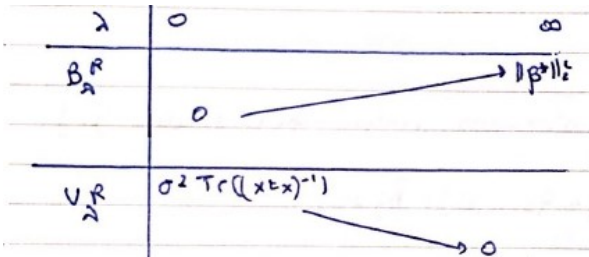 λ 0 ∞
B_λ^R 0 ‖β*‖₂²
V_λ^R σ² Tr((xtx)⁻¹) 0